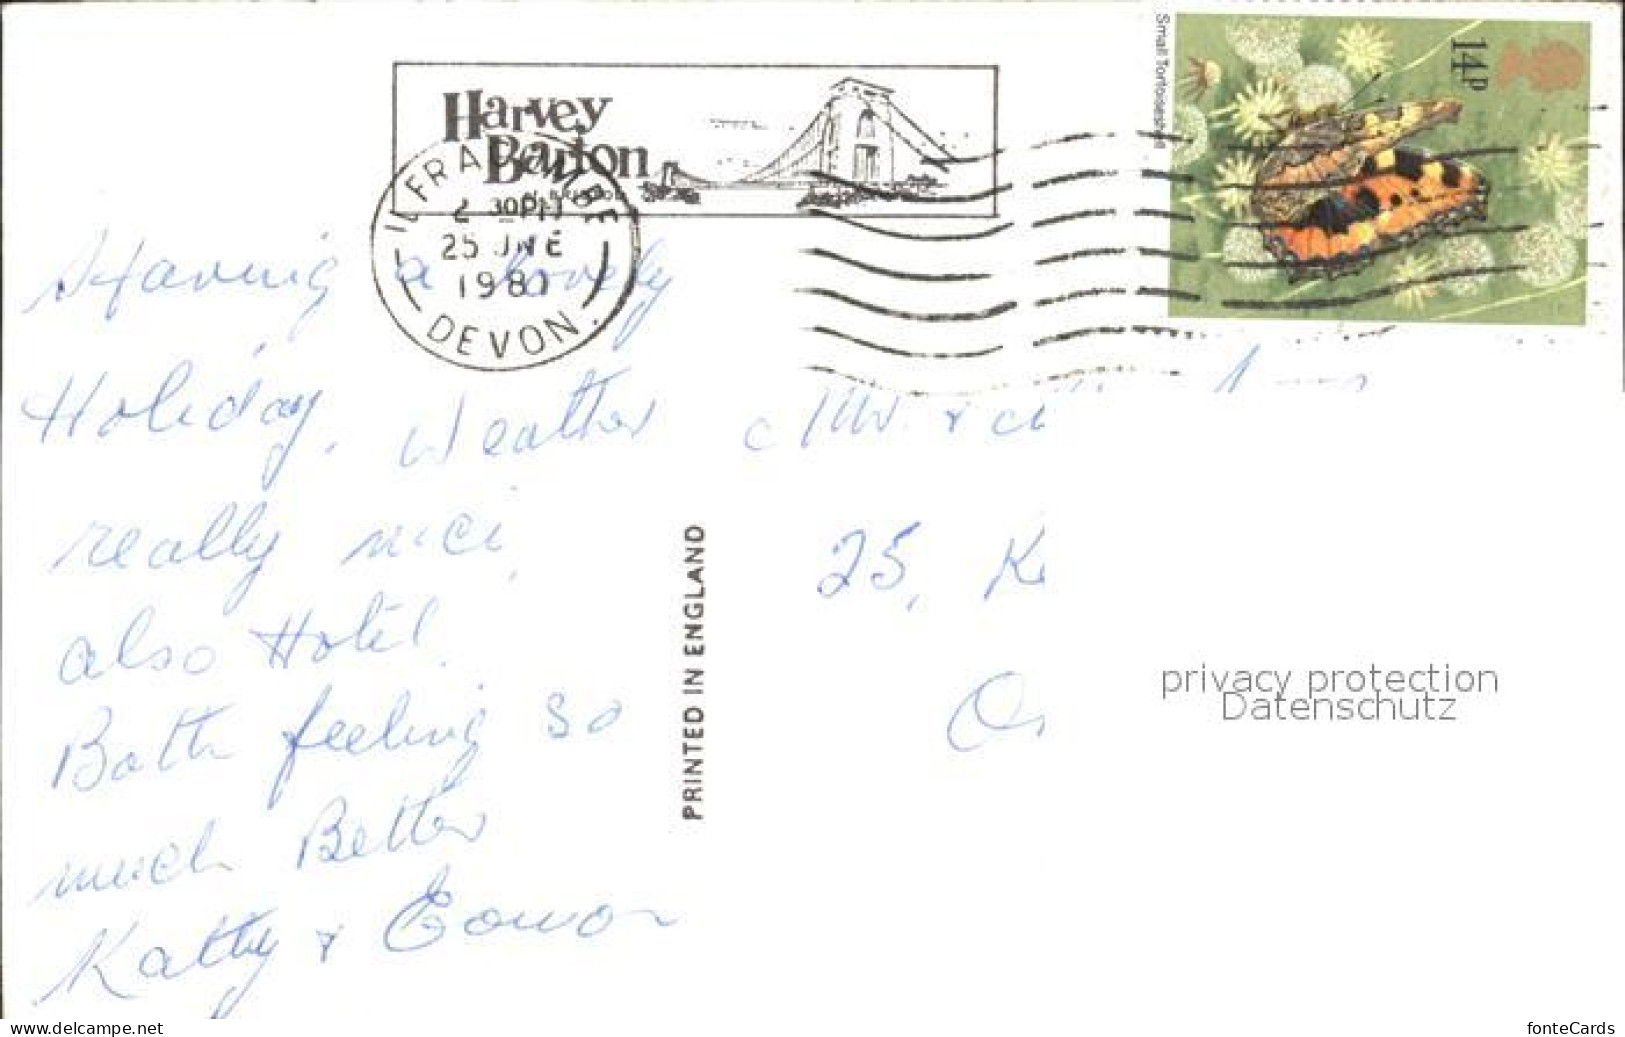 Harvey
Barton
ILFRACOMBE
2 30PM
25 JNE
1981
DEVON.
Small Tortoiseshell
14P
Having a lovely
Holiday, Weather
really nice,
also Hotel.
Both feeling so
much Better
Kathy &
PRINTED IN ENGLAND
25, K
privacy protection
Datenschutz
www.delcampe.net
fonteCards